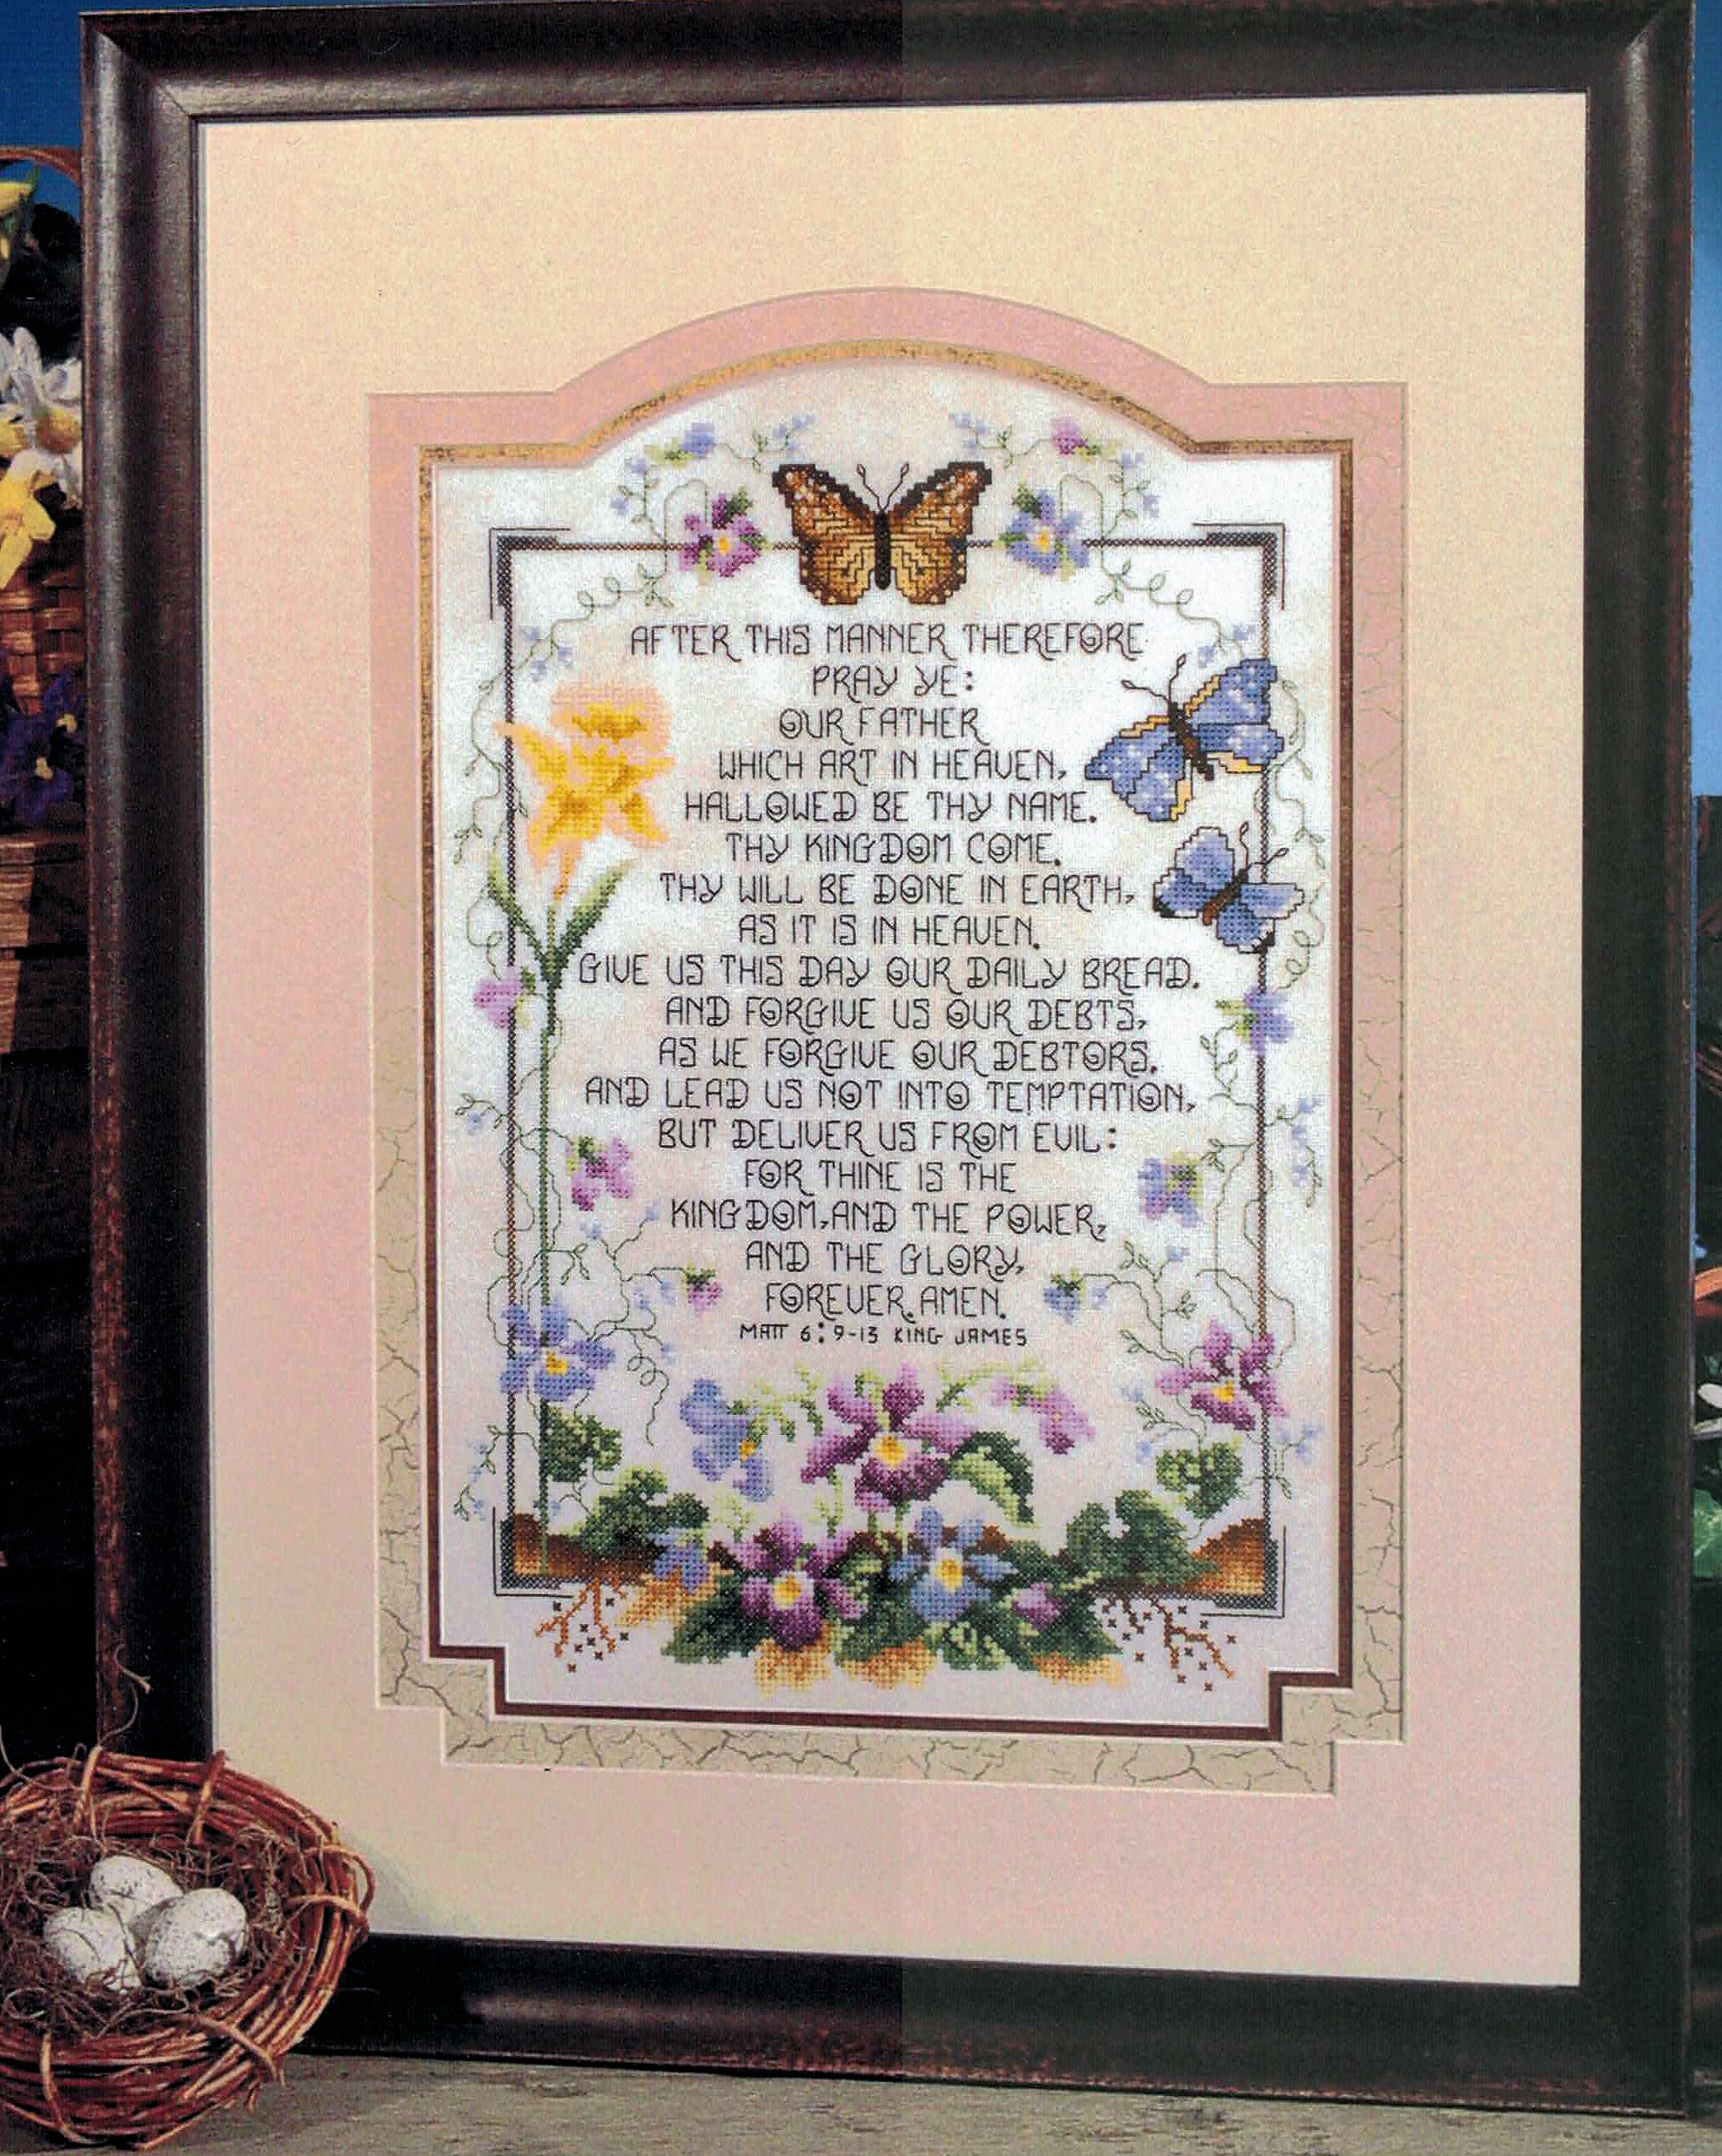 AFTER THIS MANNER THEREFORE
PRAY YE:
OUR FATHER
WHICH ART IN HEAVEN,
HALLOWED BE THY NAME.
THY KINGDOM COME.
THY WILL BE DONE IN EARTH,
AS IT IS IN HEAVEN.
GIVE US THIS DAY OUR DAILY BREAD.
AND FORGIVE US OUR DEBTS,
AS WE FORGIVE OUR DEBTORS.
AND LEAD US NOT INTO TEMPTATION,
BUT DELIVER US FROM EVIL:
FOR THINE IS THE
KINGDOM, AND THE POWER,
AND THE GLORY,
FOREVER. AMEN.
MATT 6:9-13 KING JAMES